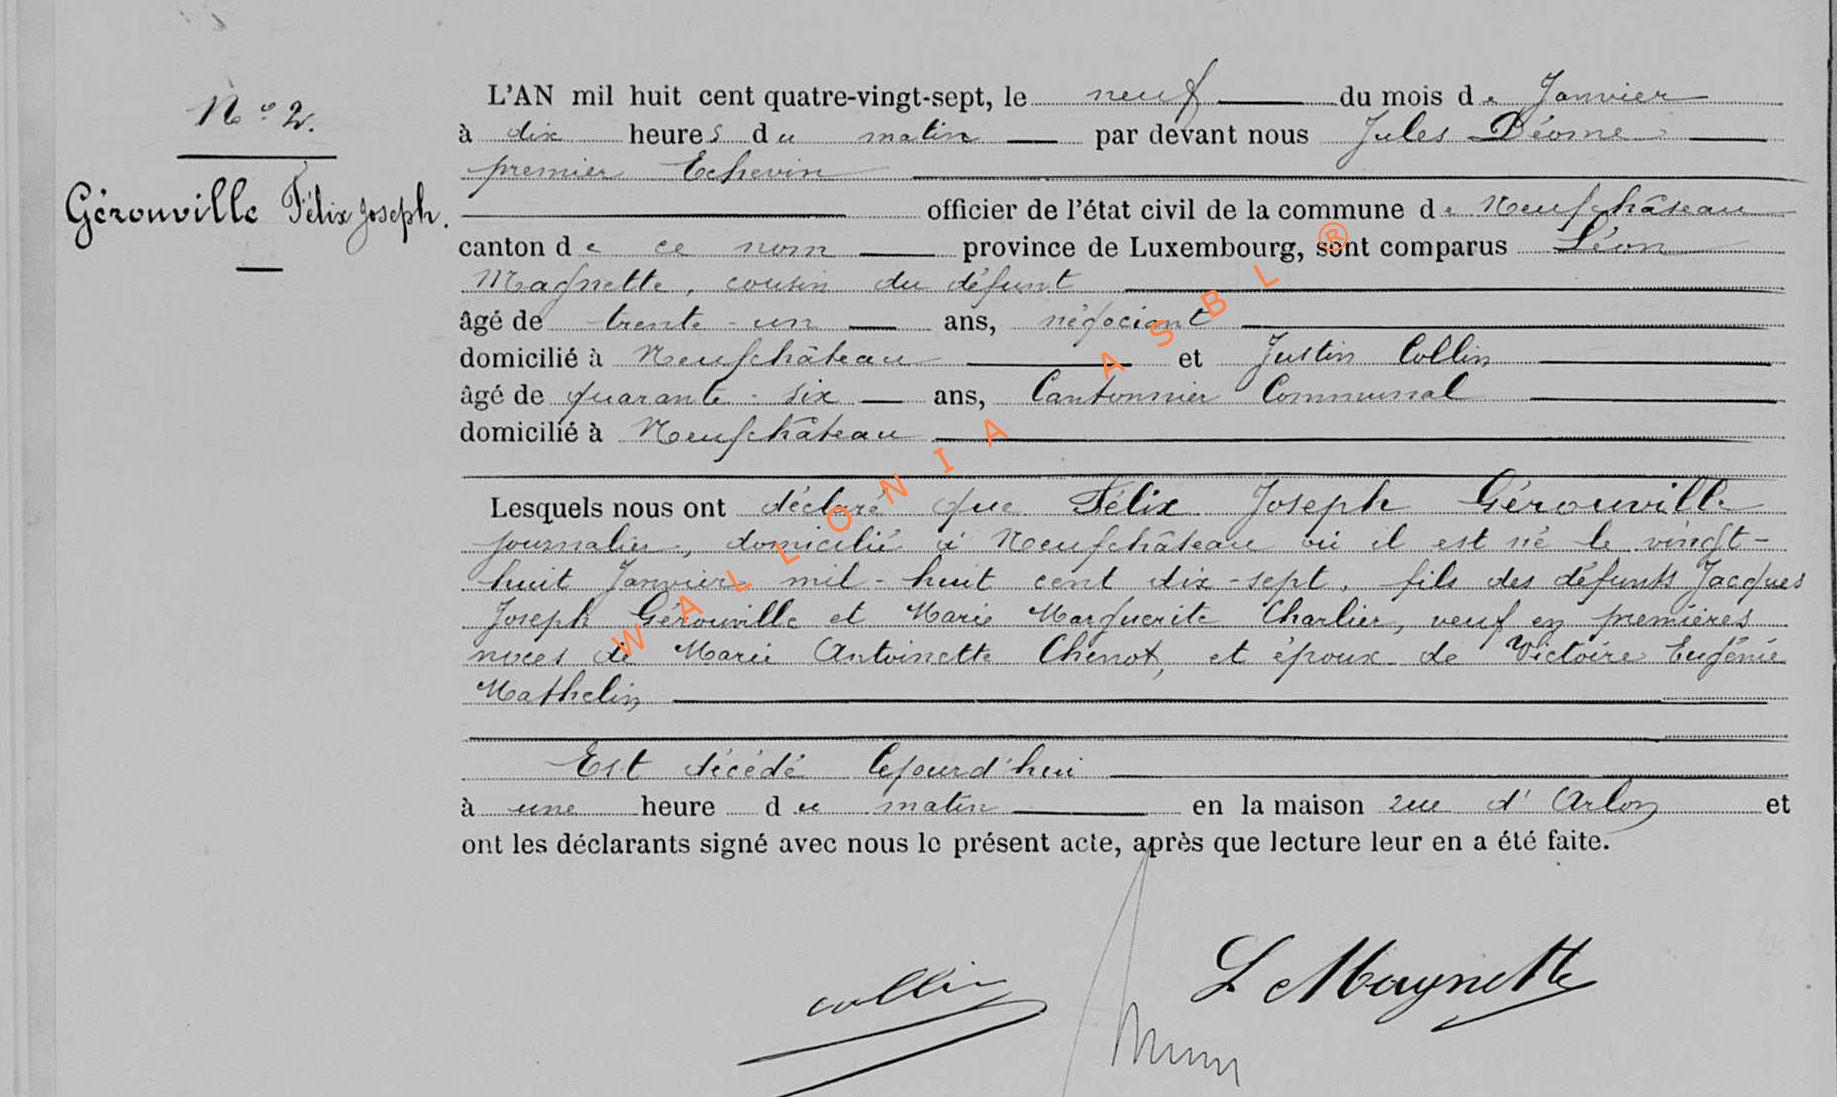 N° 2.
Gérouville Félix Joseph.
L'AN mil huit cent quatre-vingt-sept, le neuf du mois de Janvier
à dix heures du matin par devant nous Jules Déome
premier Echevin
officier de l'état civil de la commune de Neufchâteau
canton de ce nom province de Luxembourg, sont comparus Léon
Magnette, cousin du défunt
âgé de trente-un ans, négociant
domicilié à Neufchâteau et Justin Collin,
âgé de quarante-six ans, Cantonnier Communal
domicilié à Neufchâteau
Lesquels nous ont déclaré que Félix Joseph Gérouville
journalier, domicilié à Neufchâteau où il est né le vingt-
huit Janvier mil-huit cent dix-sept, fils des défunts Jacques
Joseph Gérouville et Marie Marguerite Charlier, veuf en premières
noces de Marie Antoinette Chenot, et époux de Victoire Eugénie
Mathelin,
Est décédé cejourd'hui
à une heure du matin en la maison rue d'Arlon et
ont les déclarants signé avec nous le présent acte, après que lecture leur en a été faite.
collin
L Magnette
WALLONIA ASBL ®